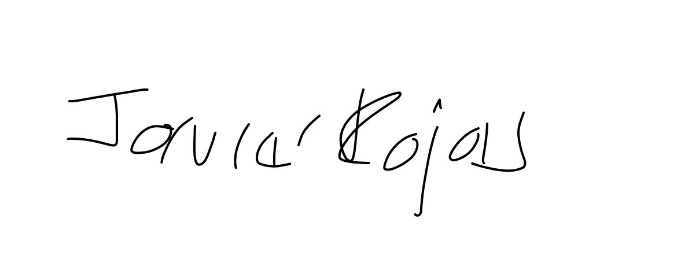 Javier Rojas